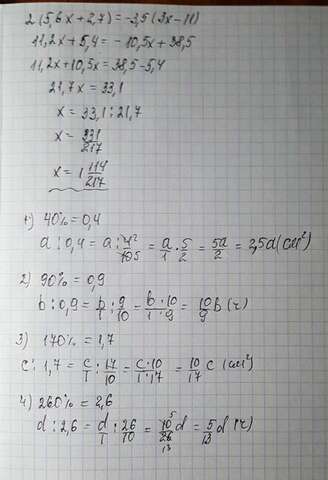 2(5,6x+2,7)=-3,5(3x-11)
11,2x+5,4=-10,5x+38,5
11,2x+10,5x=38,5-5,4
21,7x=33,1
x=33,1:21,7
x=331/217
x=1 114/217
1) 40%=0,4
a:0,4=a:4²/10 5=a/1·5/2=5a/2=2,5a(см²)
2) 90%=0,9
b:0,9=b/1:9/10=b·10/1·9=10/9b(г)
3) 170%=1,7
c:1,7=c/1:17/10=c·10/1·17=10/17c(см²)
4) 260%=2,6
d:2,6=d/1:26/10=10⁵/26 13d=5/13d(г)